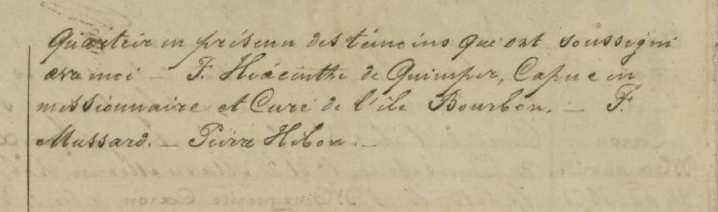 Quartier en présence des témoins qui ont soussigné
avec moi _ F. Hiacinthe de Quimper, Capucin
missionnaire et Curé de l'île Bourbon. _ F.
Mussard. _ Pierre Hibon. _